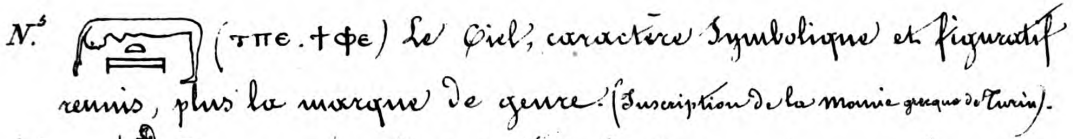 N.º 5 (ⲧⲡⲉ. ϯⲫⲉ) Le Ciel, caractère Symbolique et figuratif
reunis, plus la marque de genre. (Inscription de la momie grecque de Turin).